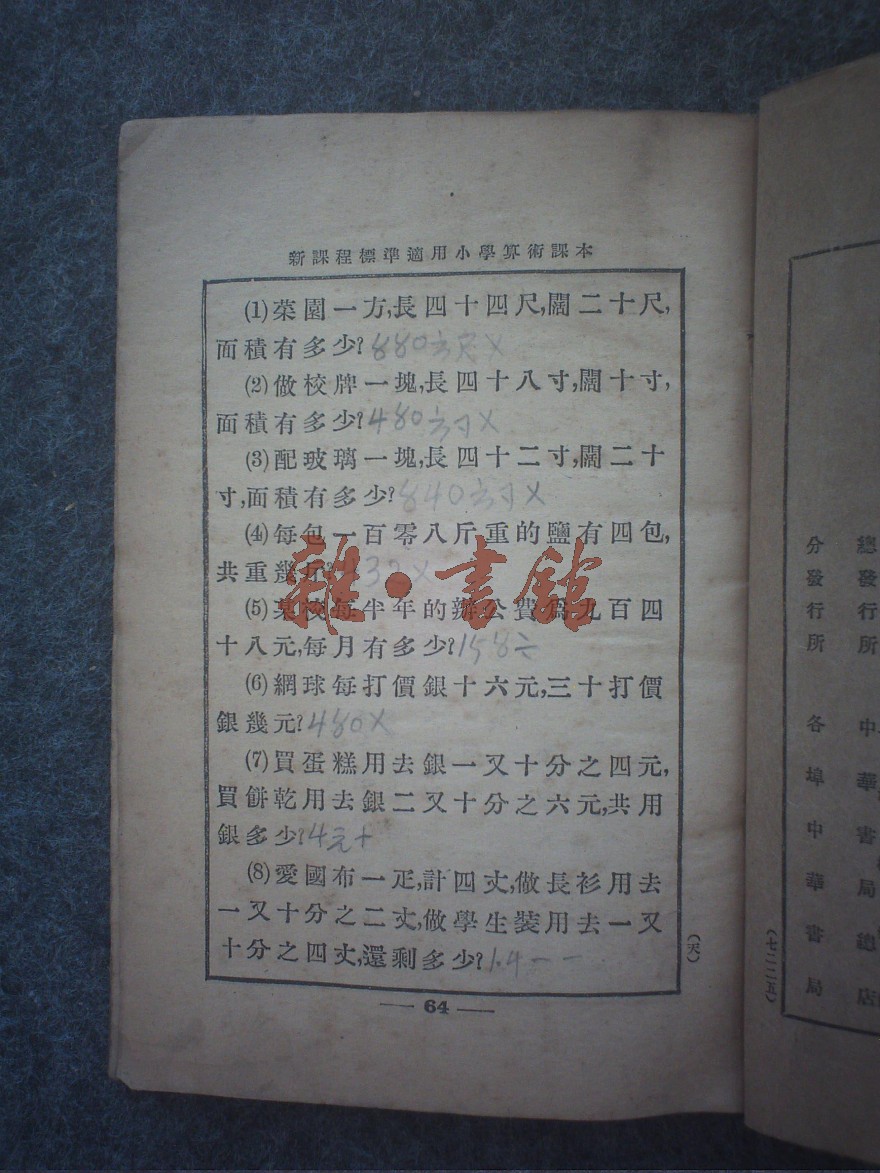 新課程標準適用小學算術課本
(1)菜園一方,長四十四尺,闊二十尺,
面積有多少?880方尺×
(2)做校牌一塊,長四十八寸,闊十寸,
面積有多少?480方寸×
(3)配玻璃一塊,長四十二寸,闊二十
寸,面積有多少?840方寸×
(4)每包一百零八斤重的鹽有四包,
共重幾斤?432×
(5)某校每半年的辦公費爲九百四
十八元,每月有多少?158÷
(6)網球每打價銀十六元,三十打價
銀幾元?480×
(7)買蛋糕用去銀一又十分之四元,
買餅乾用去銀二又十分之六元,共用
銀多少?4元+
(8)愛國布一疋,計四丈,做長衫用去
一又十分之二丈,做學生裝用去一又
十分之四丈,還剩多少?1.4一一
(天)
— 64 —
雜·書館
總發行所 中華書局總店
分發行所 各埠中華書局
(七二二五)